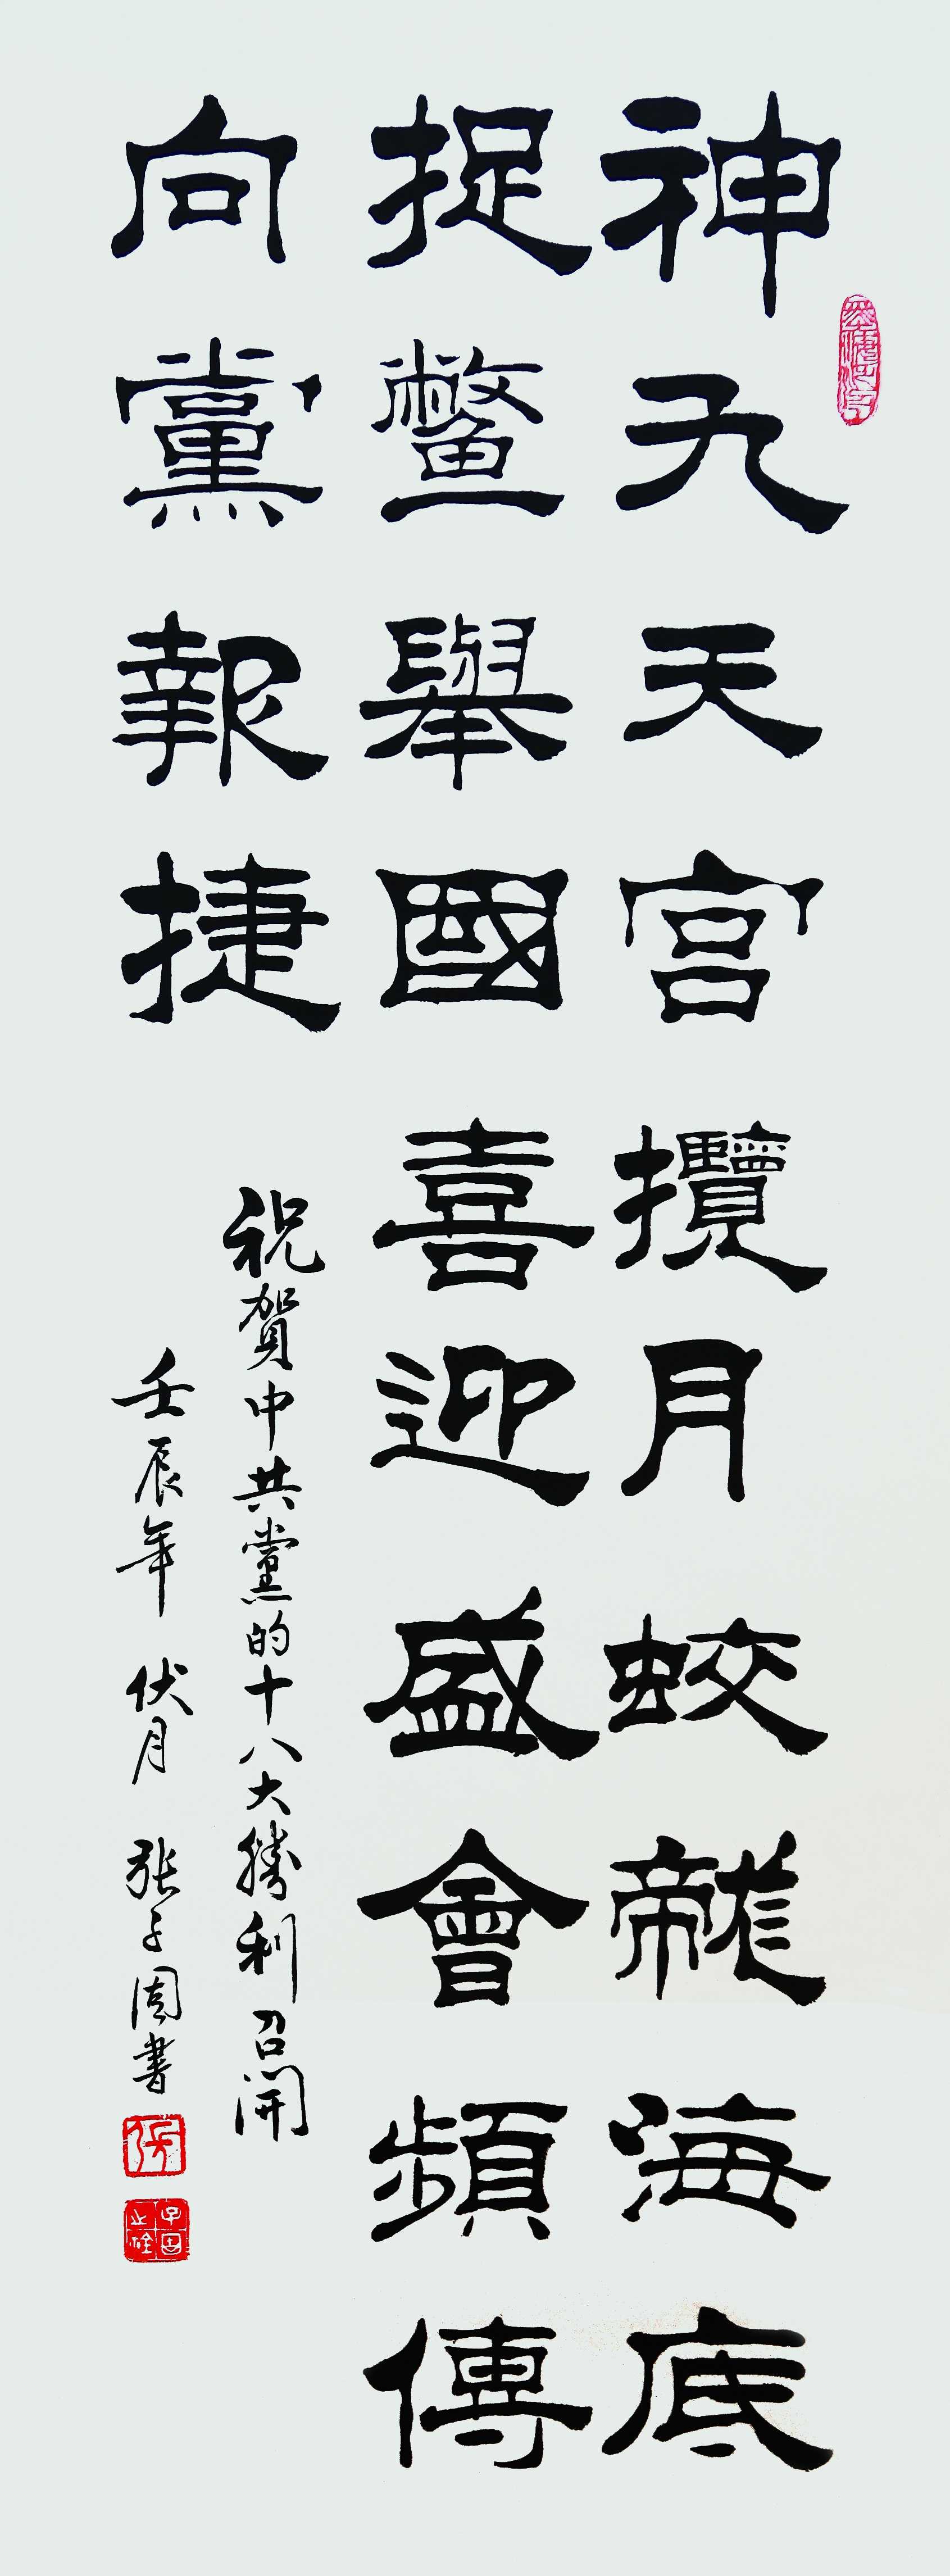 神九天宮攬月蛟龍海底
捉鱉舉國喜迎盛會頻傳
向黨報捷
祝賀中共黨的十八大勝利召開
壬辰年 伏月 張子固書